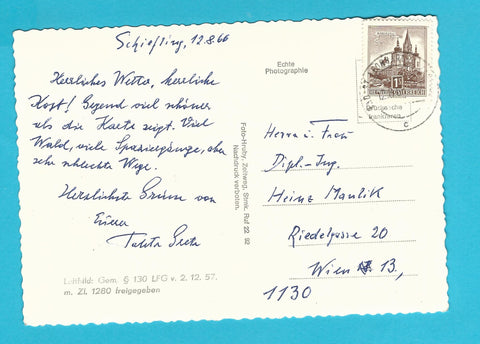 Schiefling, 12.8.66
Herrliches Wetter, herrliche
Kost! Gegend viel schöner
als die Karte zeigt. Viel
Wald, viele Spaziergänge, aber
sehr schlechte Wege.
Herzlichste Grüsse von
Tante Greta
Luftbild: Gem. § 130 LFG v. 2. 12. 57.
m. Zl. 1280 freigegeben
Foto-Hruby, Zeltweg, Stmk. Ruf 22 92
Nachdruck verboten.
Echte
Photographie
ÖSTERREICH
Herrn u. Frau
Dipl.-Ing.
Heinz Maulik
Riedelgasse 20
Wien 13,
1130